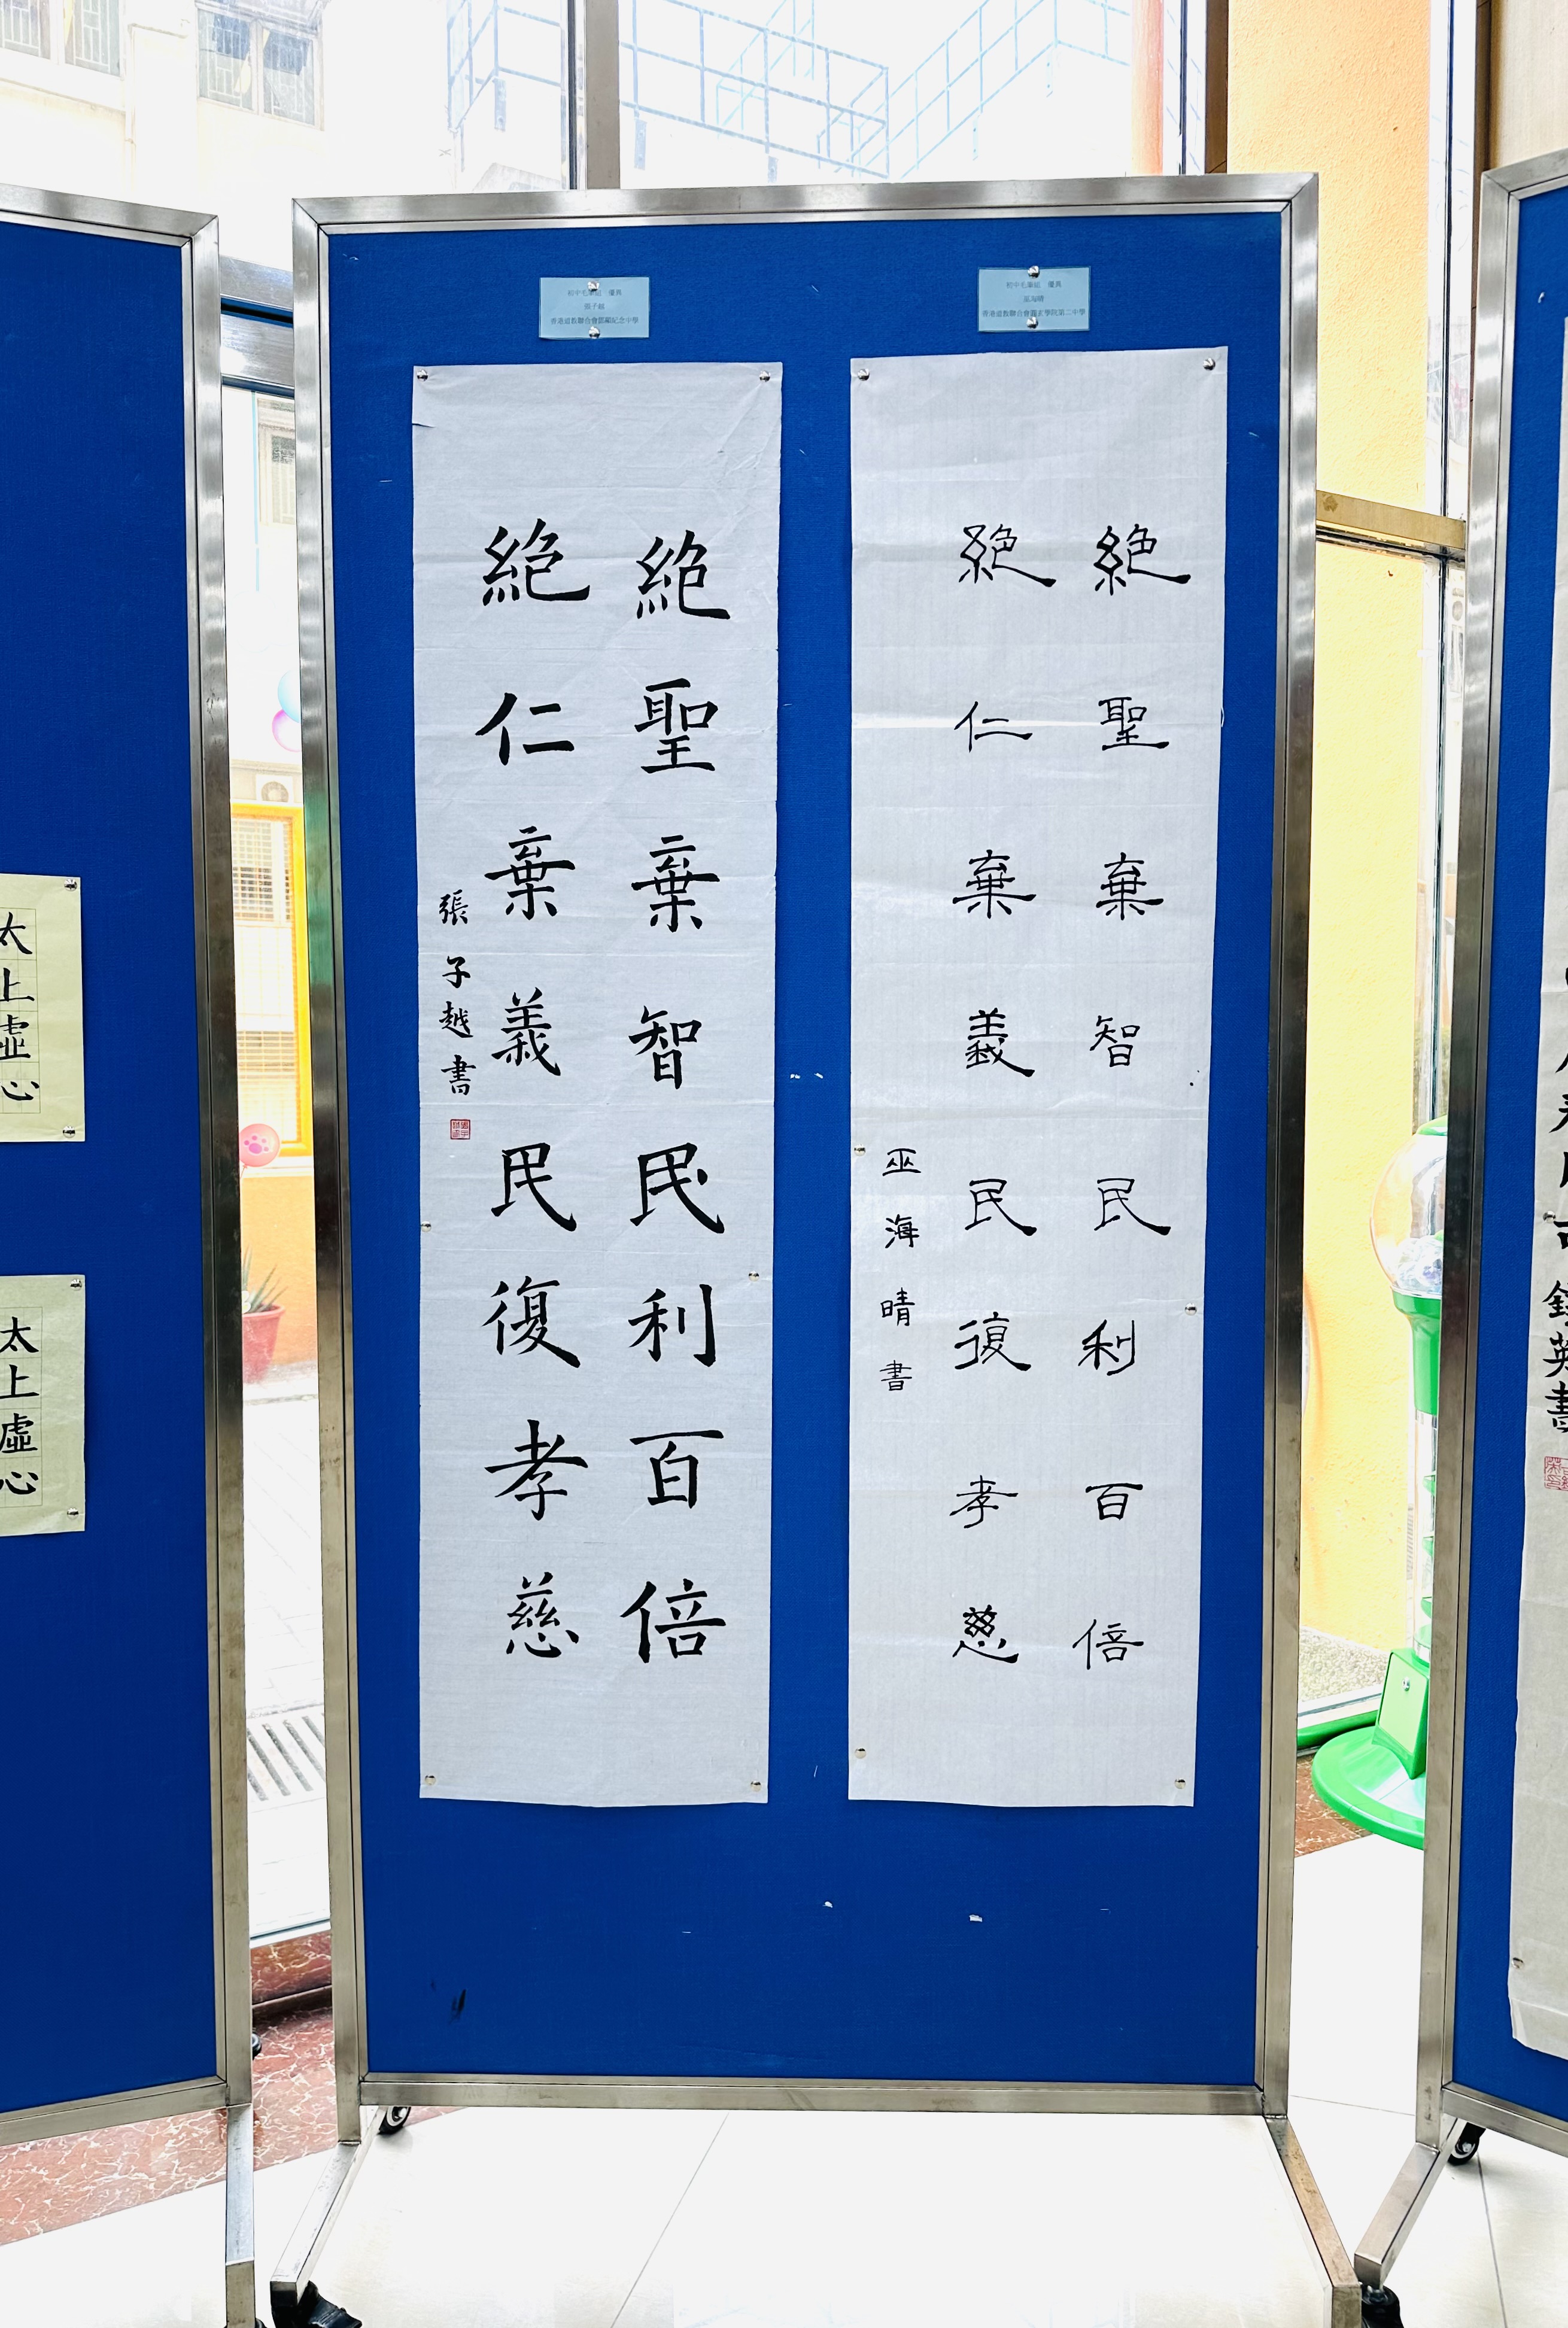 初中毛筆組 優異
張子越
香港道教聯合會鄧顯紀念中學
初中毛筆組 優異
巫海晴
香港道教聯合會圓玄學院第二中學
絕聖棄智民利百倍
絕仁棄義民復孝慈
張子越書
絕聖棄智民利百倍
絕仁棄義民復孝慈
巫海晴書
太上虛心
太上虛心
英書